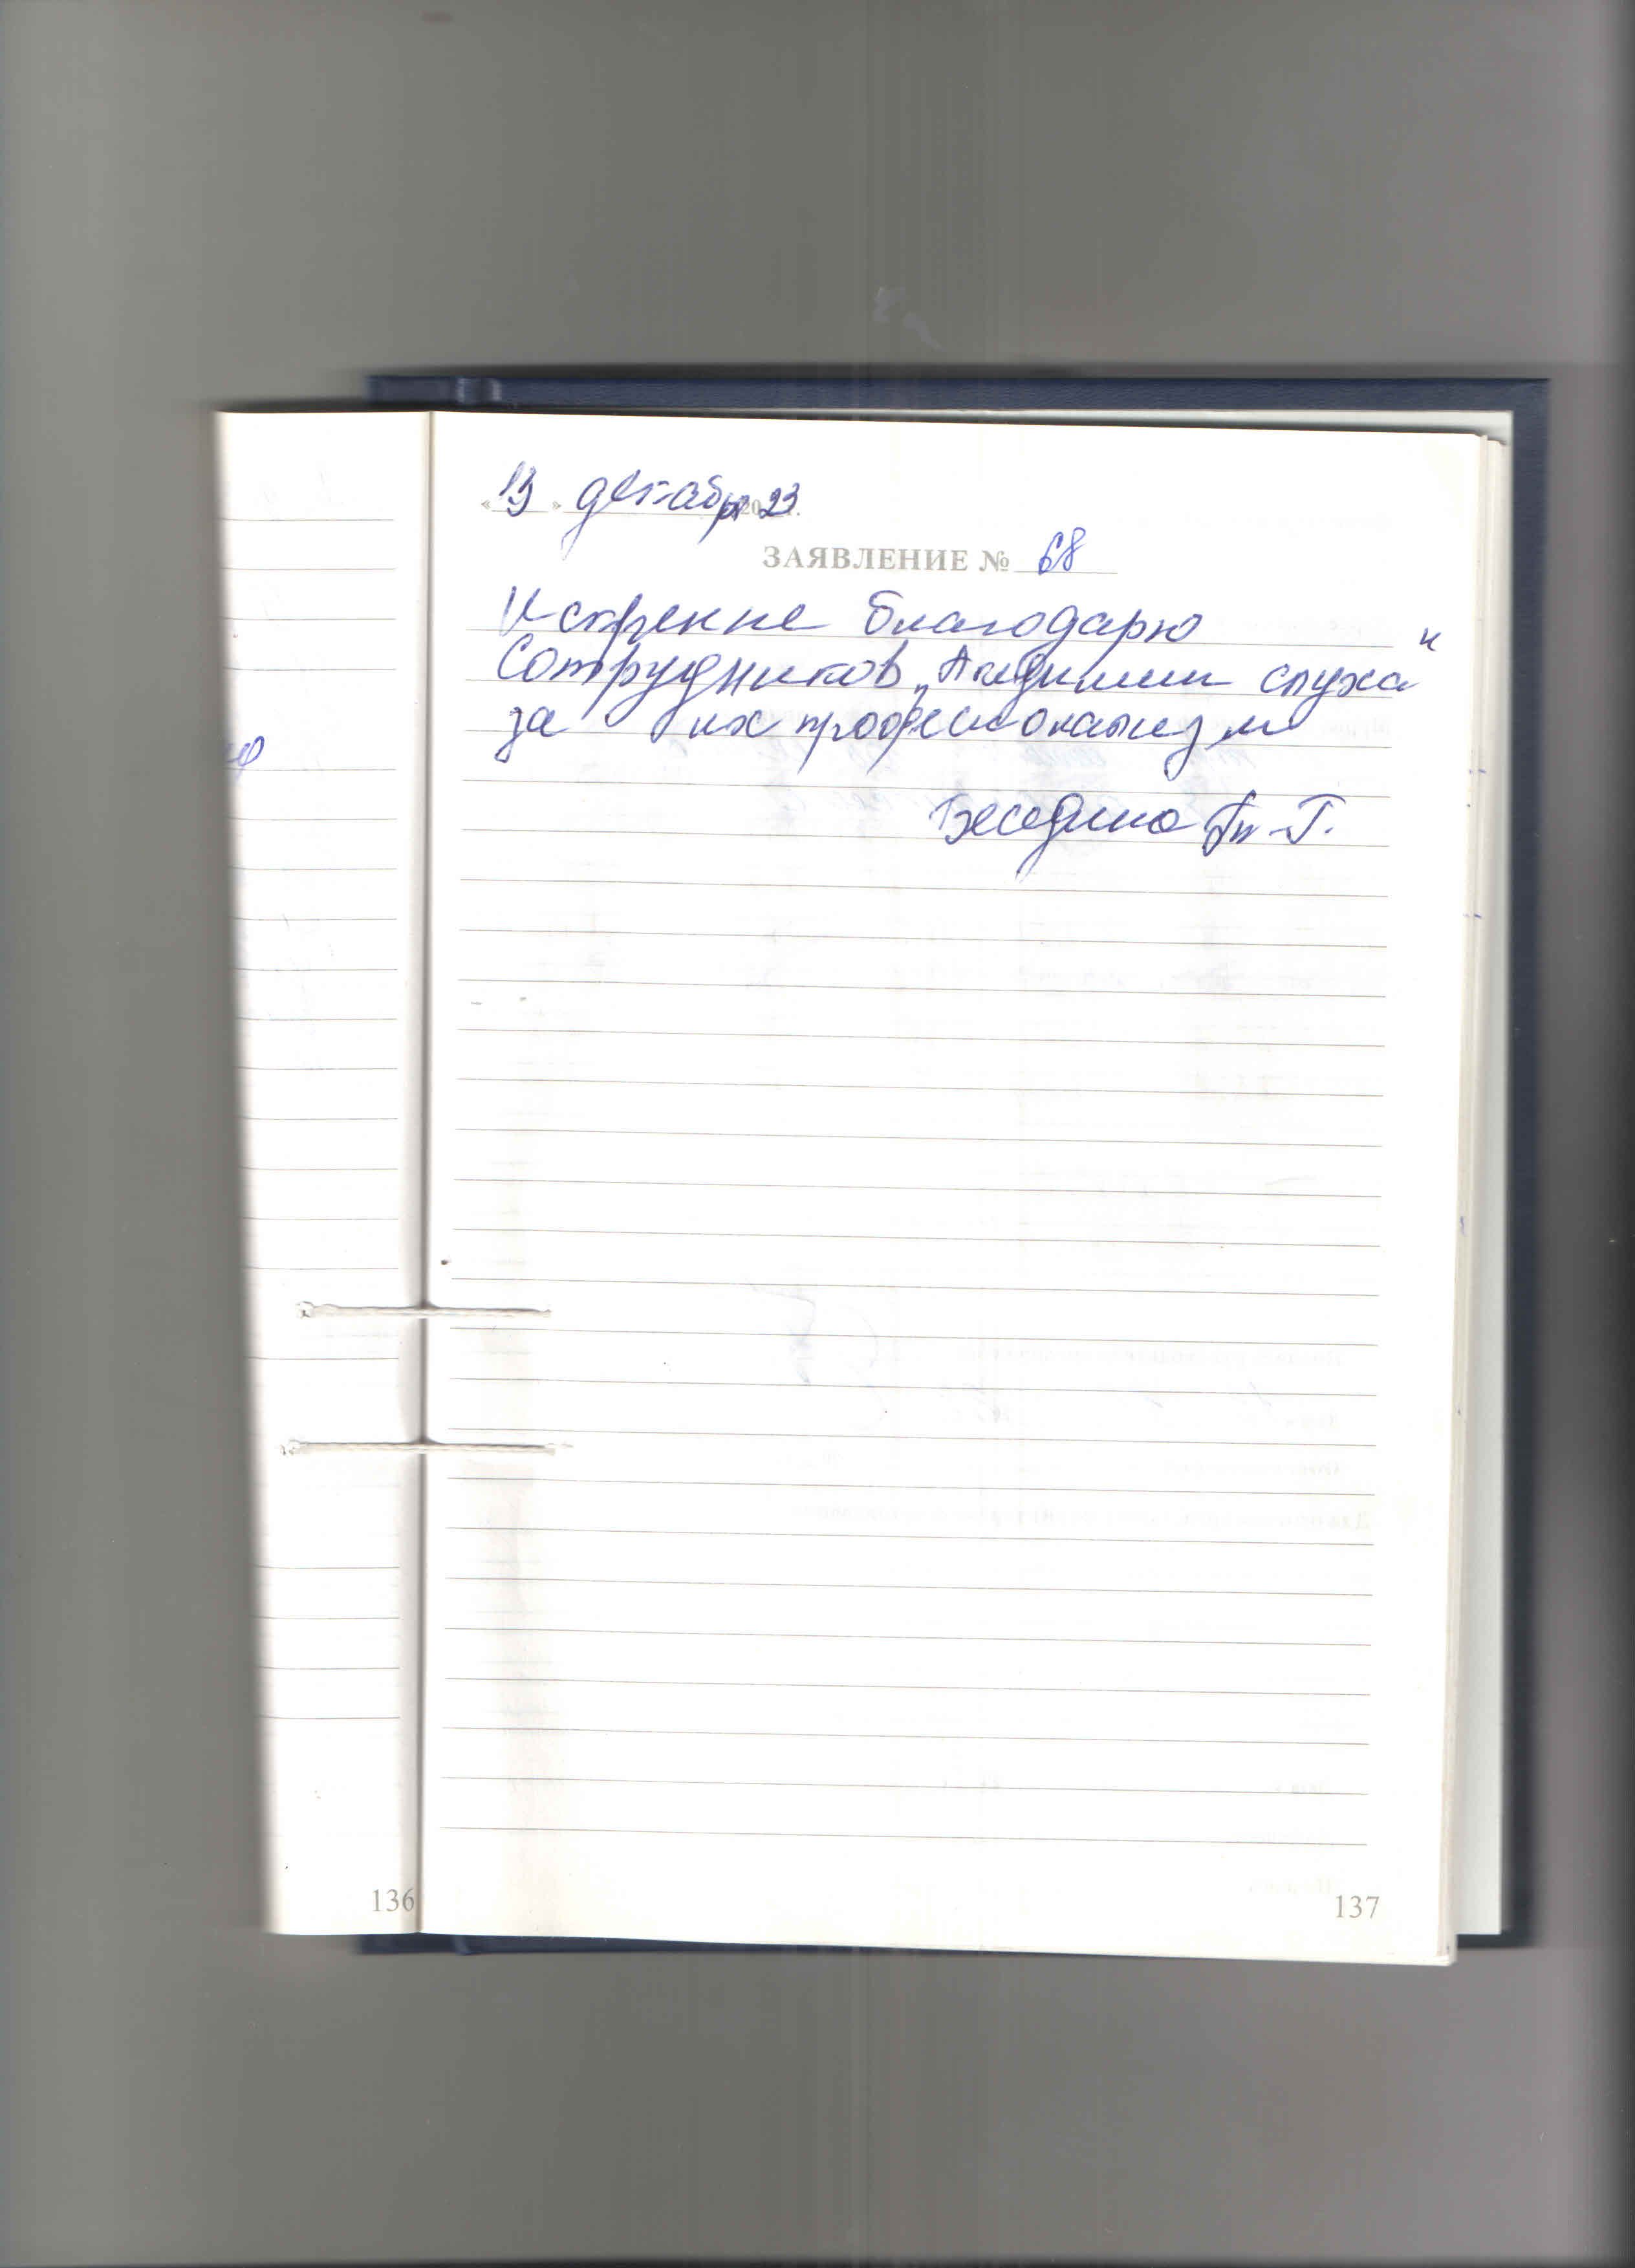 « 13 » декабря 2023 г.
ЗАЯВЛЕНИЕ № 68
Искренне благодарю
сотрудников „Академии слуха"
за их профессионализм
Беседина Г.
136
137